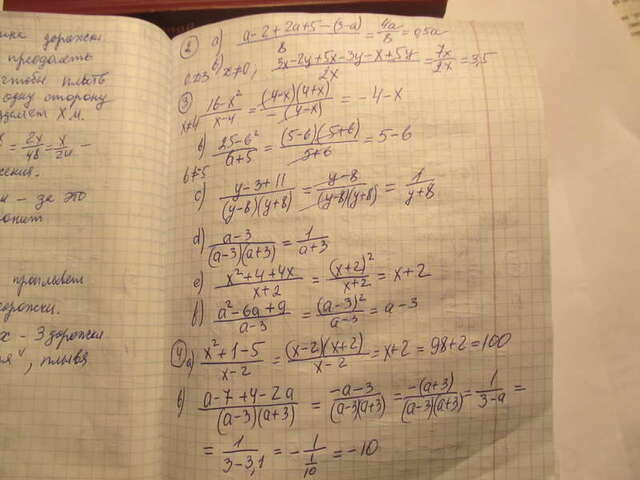 дорожки.
преодолеть
чтобы плыть
одну сторону
x.м.
= 2x/48 = x/24 —
— за это
проплывет
дорожки.
x – 3 дорожки
", плывя
② a) (a–2+2a+5–(3–a))/8 = 4a/8 = 0,5a
b) x≠0, (3x–2y+5x–3y–x+5y)/2x = 7x/2x = 3,5
③ x≠4 (16–x²)/(x–4) = (4–x)(4+x)/–(4–x) = –4–x
b) b≠–5 (25–b²)/(b+5) = (5–b)(5+b)/(5+b) = 5–b
c) (y–3+11)/(y–8)(y+8) = (y–8)/(y–8)(y+8) = 1/(y+8)
d) (a–3)/(a–3)(a+3) = 1/(a+3)
e) (x²+4+4x)/(x+2) = (x+2)²/(x+2) = x+2
f) (a²–6a+9)/(a–3) = (a–3)²/(a–3) = a–3
④ a) (x²+1–5)/(x–2) = (x–2)(x+2)/(x–2) = x+2 = 98+2 = 100
b) (a–7+4–2a)/(a–3)(a+3) = (–a–3)/(a–3)(a+3) = –(a+3)/(a–3)(a+3) = 1/(3–a) =
= 1/(3–3,1) = –1/(1/10) = –10